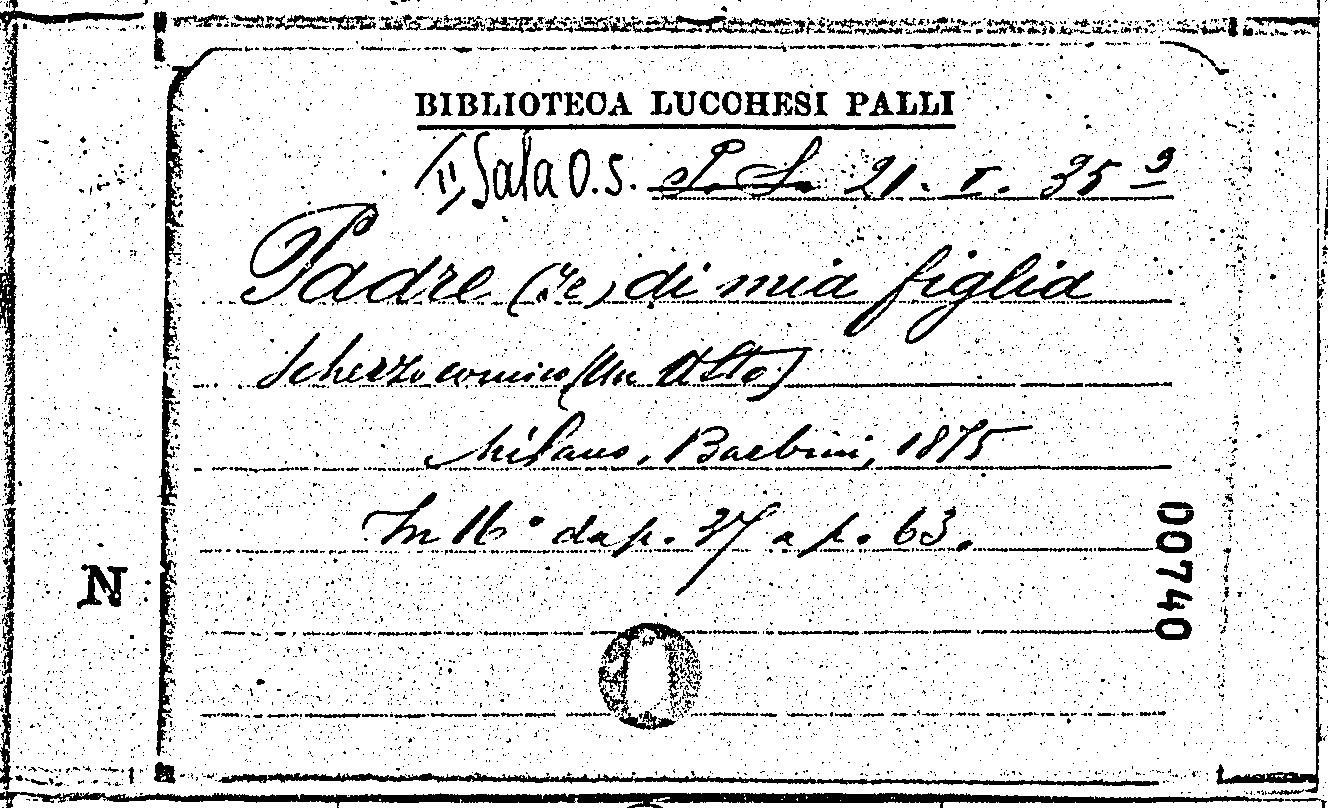 BIBLIOTECA LUCCHESI PALLI
II Sala O.S. P. S. 21. I. 35 9
Padre (Ie) di mia figlia
Scherzo comico (Un Atto)
Milano, Barbini, 1875
In 16° da p. 37 a p. 63.
N
00740